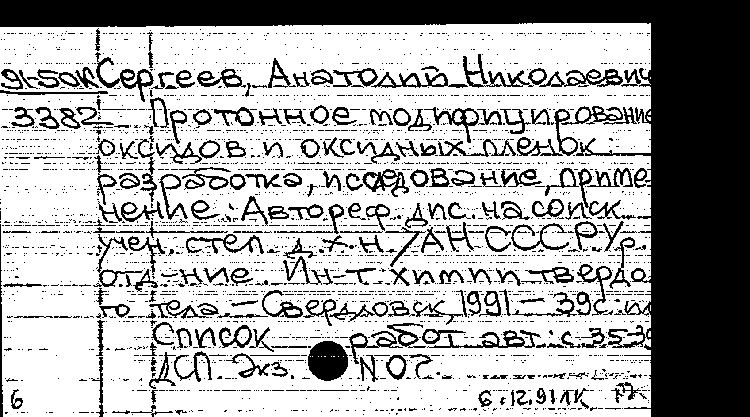 91-50к Сергеев, Анатолий Николаевич
3382 Протонное модифицирование
оксидов и оксидных пленок:
разработка, исследование, приме-
нение: Автореф. дис. на соиск.
учен. степ. д.х.н. / АН СССР, Ур.
отд-ние. Ин-т химии твердо-
го тела. — Свердловск, 1991. — 39с. ил
Список работ авт.: с. 35-39
ДСП. Экз. N 02.
6 6.12.91 ЛК